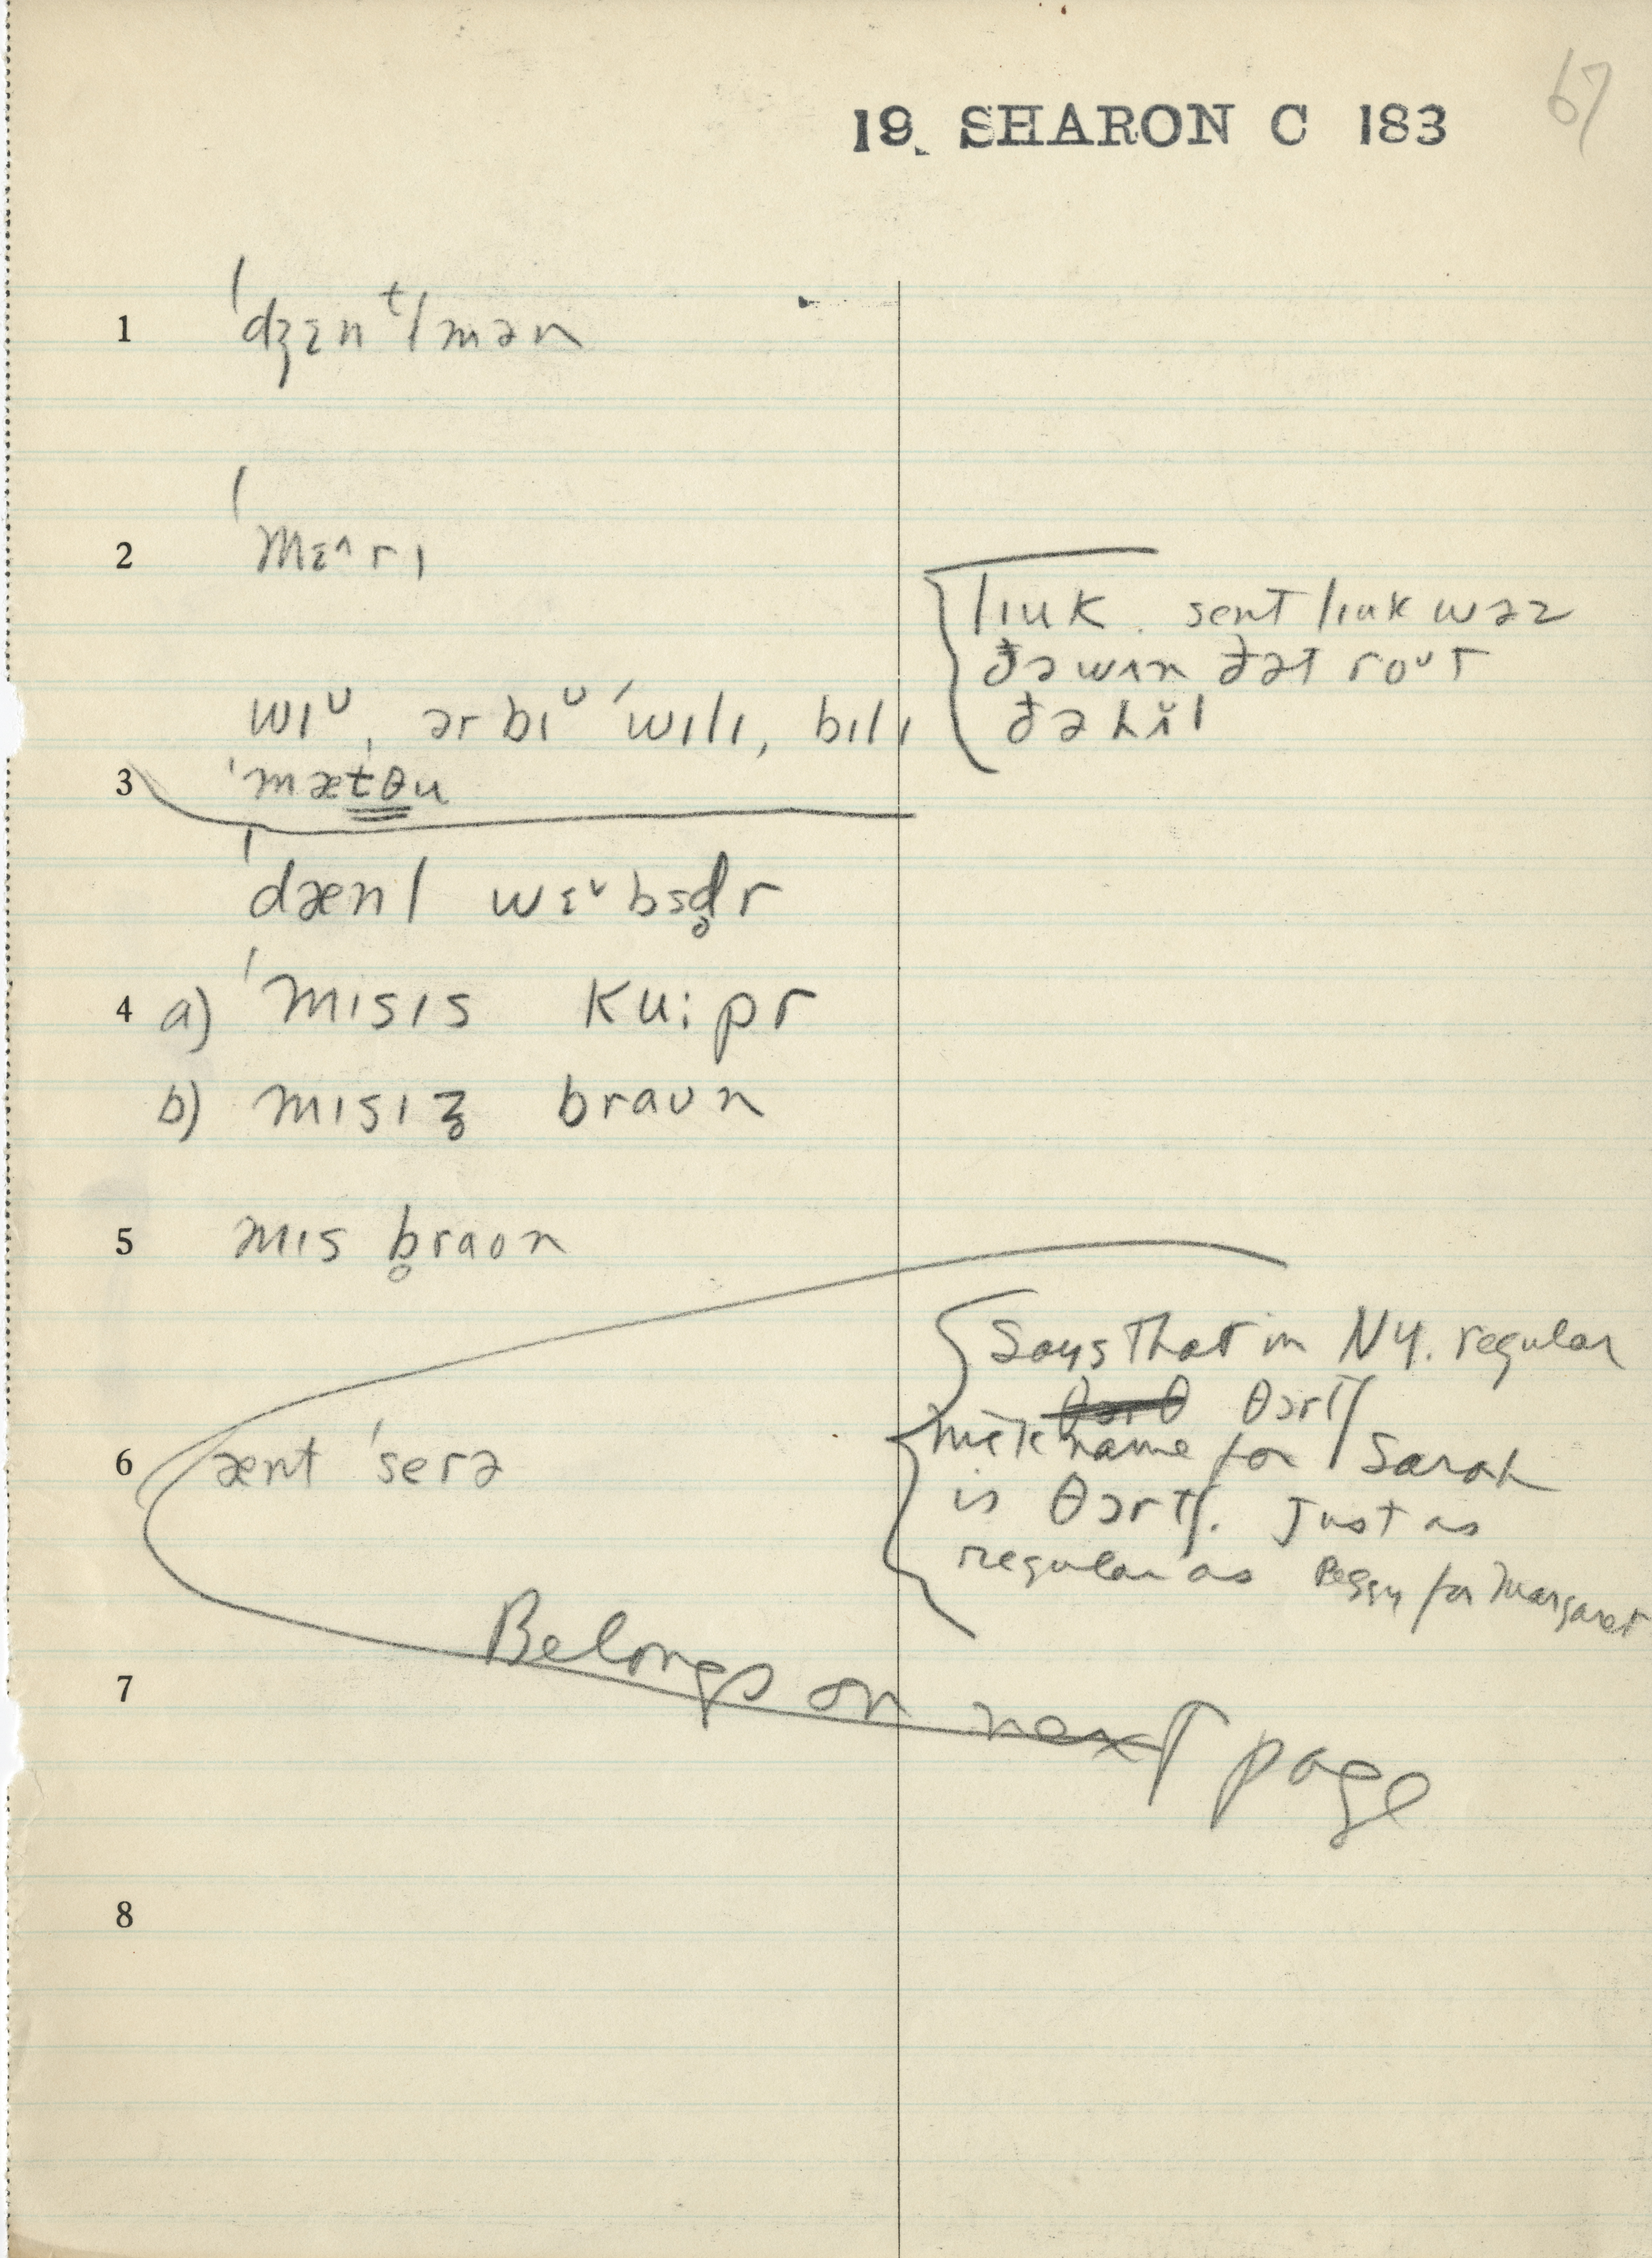 67
19. SHARON C 183
1 ˈdʒɛnᵗlmən
2 ˈmɛ^rɪ
lɪuk. sent lɪuk wəz
ðə wʌn ðət roᵘt
ðə hĭl
wɪᵘ, ər bɪᵘ ˈwɪlɪ, bɪlɪ
3 ˈmætθu
ˈdænl wɛˇbsd̥r
4 a) ˈmɪsɪs ku:pr
b) mɪsɪz̥ braun
5 mɪs b̥raun
Says that in NY. regular
θɔrtʃ
nickname for Sarah
6 ænt ˈserə
is θɔrtʃ. Just as
regular as Peggy for Margaret
Belongs on next page
7
8